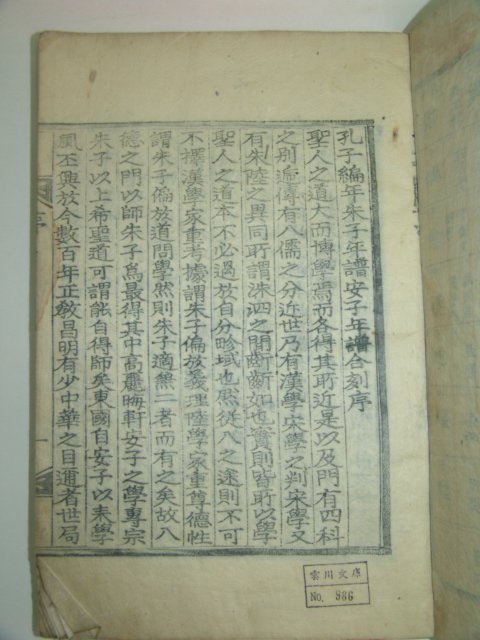 孔子編年朱子年譜安子年譜合刻序
聖人之道大而博學焉而各得其所近是以及門有四科
之別流傳有八儒之分近世乃有漢學宋學之判宋學又
有朱陸之異同所謂洙泗之間斷斷如也實則皆所以學
聖人之道本不必過放自分畛域也然從入之途則不可
不擇漢學家重考據謂朱子偏放義理陸學家重尊德性
謂朱子偏放道問學然則朱子適兼二者而有之矣故入
德之門以師朱子爲最得其中高麗晦軒安子之學專宗
朱子以上希聖道可謂能自得師矣東國自安子以來學
風丕興放今數百年正教昌明有少中華之目邇者世局
序
一
雲川文庫
No. 986